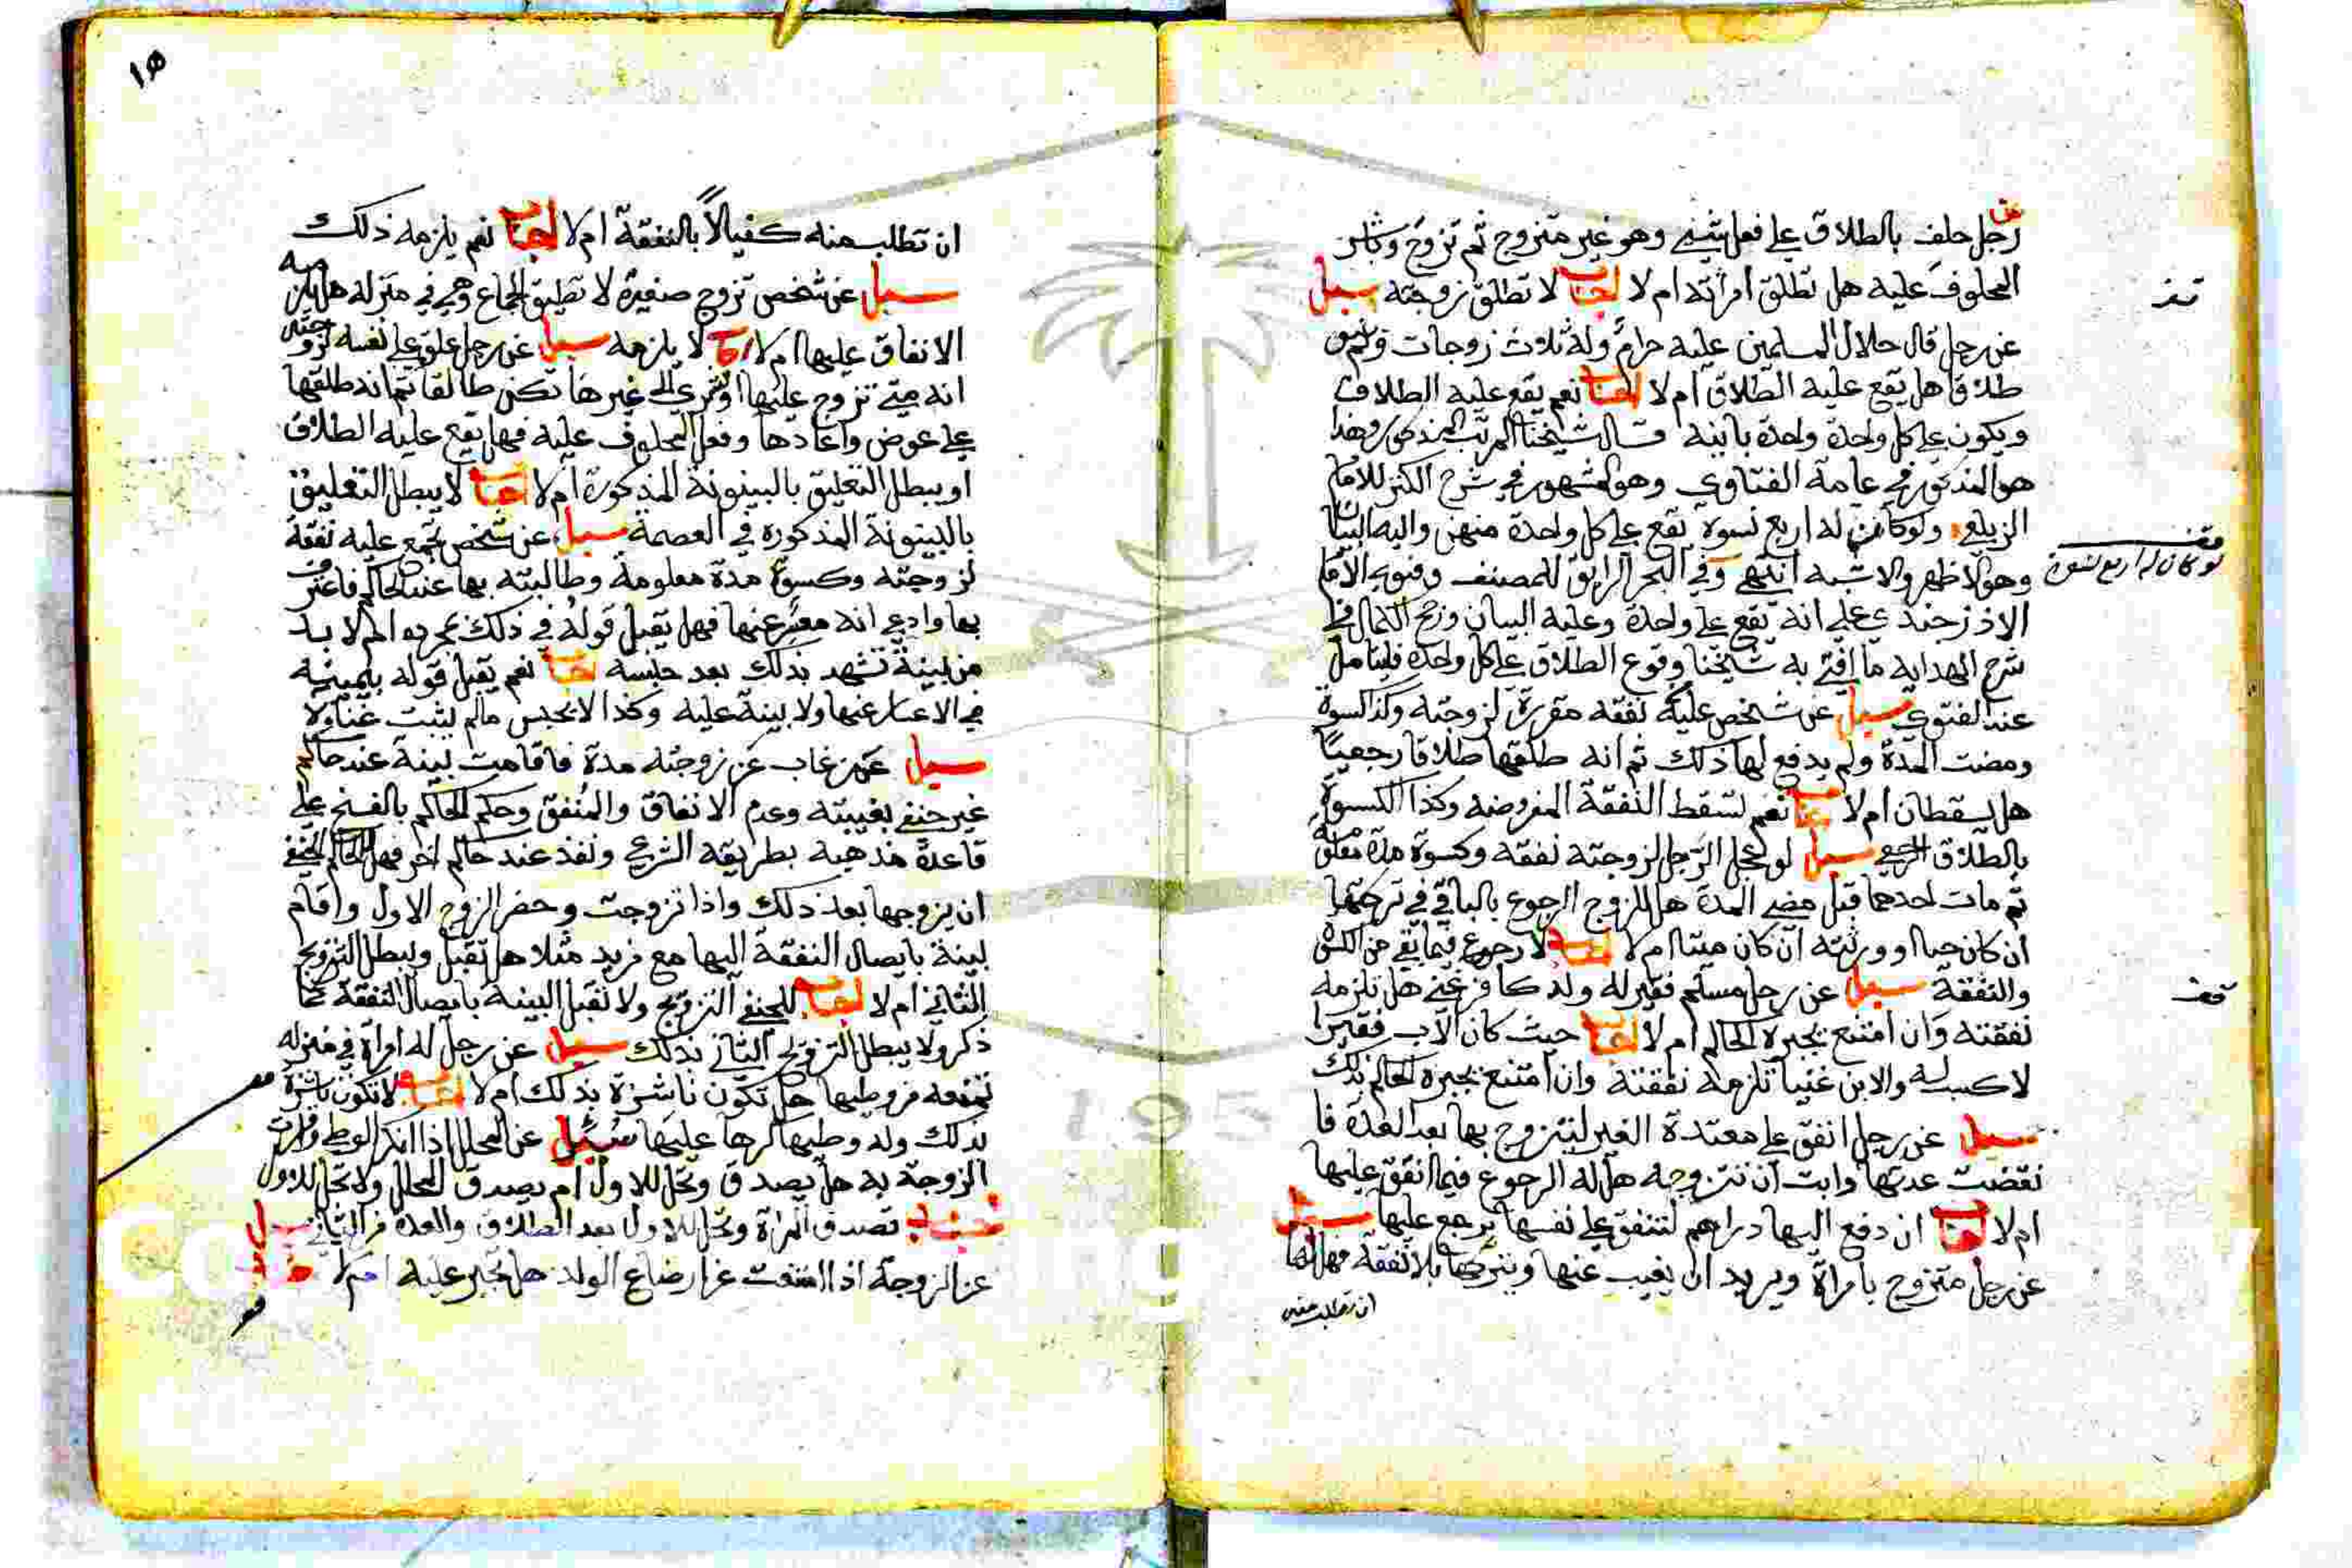 عن
رجل حلف بالطلاق على فعل شيء وهو غير متزوج ثم تزوج وباشر
المحلوف عليه هل تطلق امراته ام لا اجاب لا تطلق زوجته سيل
عن رجل قال حلال المسلمين عليه حرام وله ثلاث زوجات ولم ينو
طلاقا هل يقع عليه الطلاق ام لا اجاب نعم يقع عليه الطلاق
ويكون على كل واحدة واحدة باينه قال شيخنا المرتب المذكور وهذا
هو المذكور في عامة الفتاوي وهو المشهور في شرح الكنز للامام
الزيلعي ولو كان له اربع نسوة تقع على كل واحدة منهن واليه البيان
وهو الاظهر والاشبه انتهى وفي البحر الرايق للمصنف وفتوى الامام
الاوزجندي على انه تقع على واحدة وعليه البيان ورجح الكمال في
شرح الهدايه ما افتى به شيخنا وقوع الطلاق على كل واحدة فليتامل
عند الفتوى سيل عن شخص عليه نفقه مقررة لزوجته وكذا كسوة
ومضت المدة ولم يدفع لها ذلك ثم انه طلقها طلاقا رجعيا
هل يسقطان ام لا اجاب نعم تسقط النفقة المفروضه وكذا الكسوة
بالطلاق الرجعي سيل لو عجل الرجل لزوجته نفقه وكسوة مدة معلومة
ثم مات احدهما قبل مضي المدة هل للزوج الرجوع بالباقي في تركتها
ان كان حيا او ورثته ان كان ميتا ام لا اجاب لا رجوع فيما بقي من الكسوة
والنفقة سيل عن رجل مسلم فقير له ولد كافر غني هل تلزمه
نفقته وان امتنع يجبره الحاكم ام لا اجاب حيث كان الاب فقيرا
لا كسب له والابن غنيا تلزمه نفقته وان امتنع يجبره الحاكم بذلك
سيل عن رجل انفق على معتدة الغير ليتزوج بها بعد العدة فا
نقضت عدتها وابت ان تتزوجه هل له الرجوع فيما انفق عليها
ام لا اجاب ان دفع اليها دراهم لتنفق على نفسها يرجع عليها سيل
عن رجل متزوج بامراة ويريد ان يغيب عنها ويتركها بلا نفقة فهل لها
ان تطلب منه
قف
قف
لو كان له اربع نسوة
قف
١٥
ان تطلب منه كفيلا بالنفقة ام لا اجاب نعم يلزمه ذلك
سيل عن شخص تزوج صغيرة لا تطيق الجماع وهي في منزله هل يلزمه
الانفاق عليها ام لا اجاب لا يلزمه سيل عن رجل علق على نفسه لزوجته
انه متى تزوج عليها او تسرى الى غيرها تكن طالقا ثم انه طلقها
على عوض واعادها وفعل المحلوف عليه فهل يقع عليه الطلاق
او يبطل التعليق بالبينونة المذكورة ام لا اجاب لا يبطل التعليق
بالبينونة المذكوره في العصمة سيل عن شخص تجمع عليه نفقة
لزوجته وكسوة مدة معلومة وطالبته بها عند الحاكم فاعترف
بها وادعى انه معسر عنها فهل يقبل قوله في ذلك بمجرده ام لا بد
من بينة تشهد بذلك بعد حبسه اجاب نعم يقبل قوله بيمينه
في الاعسار عنها ولا بينة عليه وكذا لا يحبس مالم يثبت غناه ولا
سيل عمن غاب عن زوجته مدة فاقامت بينة عند حاكم
غير حنفي بغيبته وعدم الانفاق والمنفق وحكم الحاكم بالفسخ على
قاعدة مذهبه بطريقه الشرعي ونفذ عند حاكم اخر فهل للحاكم الحنفي
ان يزوجها بعد ذلك واذا تزوجت وحضر الزوج الاول واقام
بينة بايصال النفقة اليها مع فريد مثلا هل تقبل ويبطل التزويج
الثاني ام لا اجاب للحنفي التزويج ولا تقبل البينة بايصال النفقة كما
ذكر ولا يبطل التزويج الثاني بذلك سيل عن رجل له امراة في منزله
تمنعه من وطيها هل تكون ناشزة بذلك ام لا اجاب لا تكون ناشزة
بذلك وله وطيها كرها عليها سئيل عن المحلل اذا انكر الوطي واقرت
الزوجة به هل يصدق وتحل للاول ام يصدق المحلل ولا تحل للاول
اجاب تصدق المراة وتحل للاول بعد الطلاق والعدة من الثاني سيل
عن الزوجة اذا امتنعت عن ارضاع الولد هل تجبر عليه ام لا اجاب